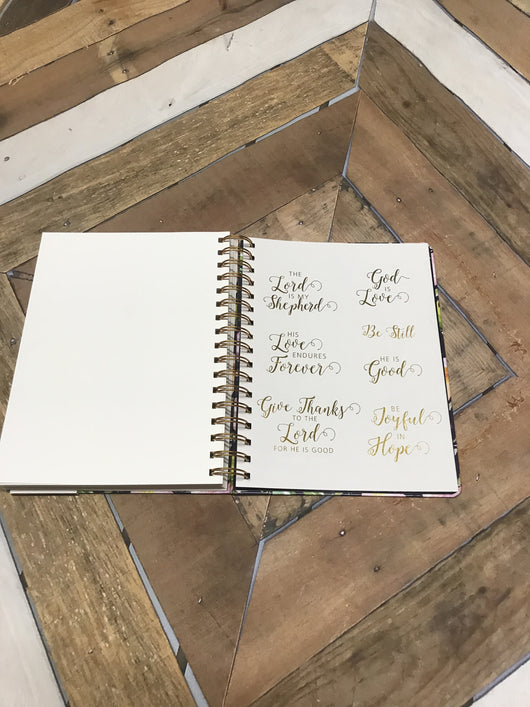 THE
Lord
IS MY
Shepherd
God
IS
Love
Be Still
HIS
Love
ENDURES
Forever
HE IS
Good
Give Thanks
TO THE
Lord
FOR HE IS GOOD
BE
Joyful
IN
Hope